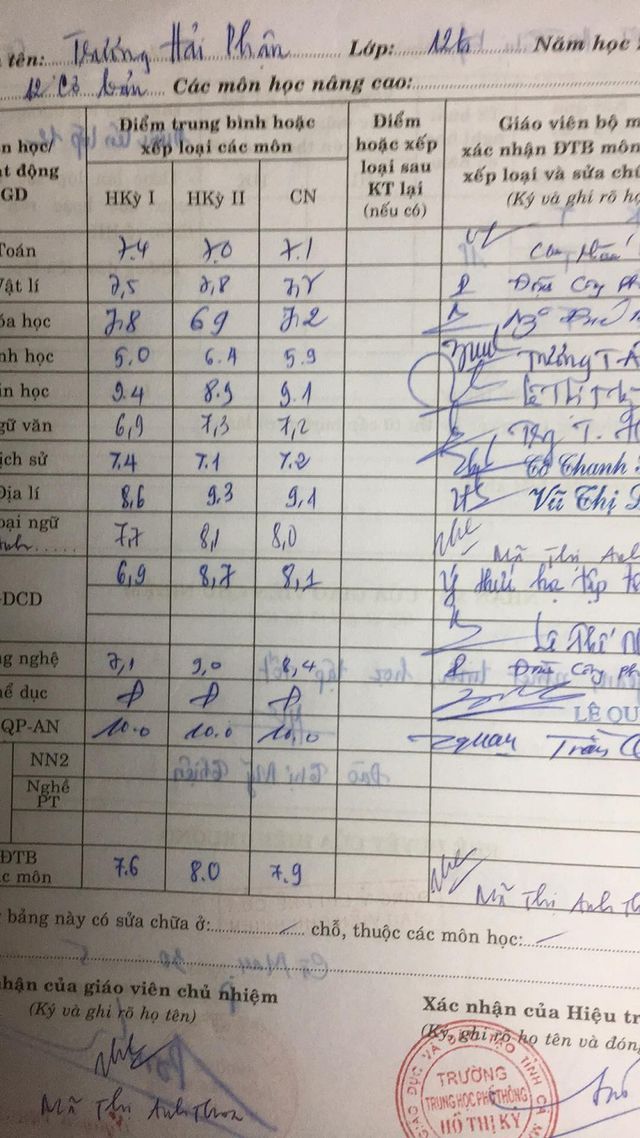 tên: Trương Hải Phận Lớp: 12 Năm học
12 Cơ bản Các môn học nâng cao:
n học/ Điểm trung bình hoặc Điểm Giáo viên bộ m
t động xếp loại các môn hoặc xếp xác nhận ĐTB môn
GD HKỳ I HKỳ II CN loại sau xếp loại và sửa ch
KT lại (Ký và ghi rõ họ
(nếu có)
Toán 7.4 7.0 7.1
Vật lí 7,5 7,8 Công Ph
óa học 7.8 6.9 7.2
nh học 5.0 6.4 5.9 Trương T
in học 9.4 8.9 9.1 Lê Thị
gữ văn 6,9 7,3 7,2 T.
ịch sử 7.4 7.1 7.2 Thanh
Địa lí 8.6 9.3 9,1 Vũ Thị
oại ngữ 7,7 8,1 8,0
Anh..... Mã Thị Anh
DCD 6,9 8,7 8,1 Ý thức học tập
Lê Thế
ng nghệ 7,1 9,0 8,4 Công Ph
ể dục Đ Đ Đ LÊ QU
QP-AN 10.0 10.0 10.0 Trần
NN2
Nghề
PT
ĐTB 7.6 8.0 7.9
c môn Mã Thị Anh Tho
g bảng này có sửa chữa ở: chỗ, thuộc các môn học:
nhận của giáo viên chủ nhiệm
(Ký và ghi rõ họ tên)
Mã Thị Anh Thoa
Xác nhận của Hiệu tr
(Ký, ghi rõ họ tên và đón
GIÁO DỤC VÀ ĐÀO TẠO TỈNH CÀ M
TRƯỜNG
TRUNG HỌC PHỔ THÔNG
HỒ THỊ KỶ